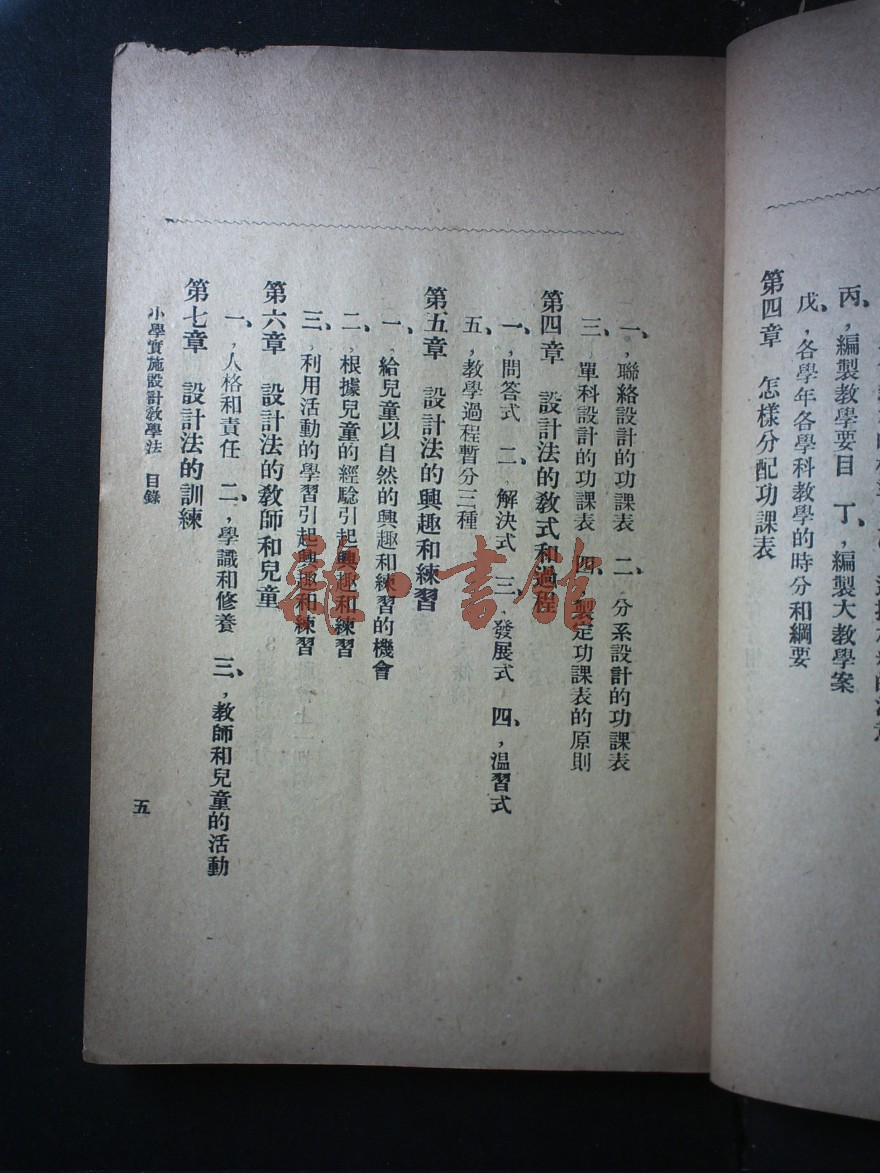 丙、，編製教學要目　丁、，編製大教學案
戊、，各學年各學科教學的時分和綱要
第四章　怎樣分配功課表
一、，聯絡設計的功課表　二、，分系設計的功課表
三、，單科設計的功課表　四、，製定功課表的原則
第四章　設計法的教式和過程
一、，問答式　二、，解決式　三、，發展式　四、，温習式
五、，教學過程暫分三種
第五章　設計法的興趣和練習
一、，給兒童以自然的興趣和練習的機會
二、，根據兒童的經驗引起興趣和練習
三、，利用活動的學習引起興趣和練習
第六章　設計法的教師和兒童
一、，人格和責任　二、，學識和修養　三、，教師和兒童的活動
第七章　設計法的訓練
小學實施設計教學法　目錄
五
雜·書館